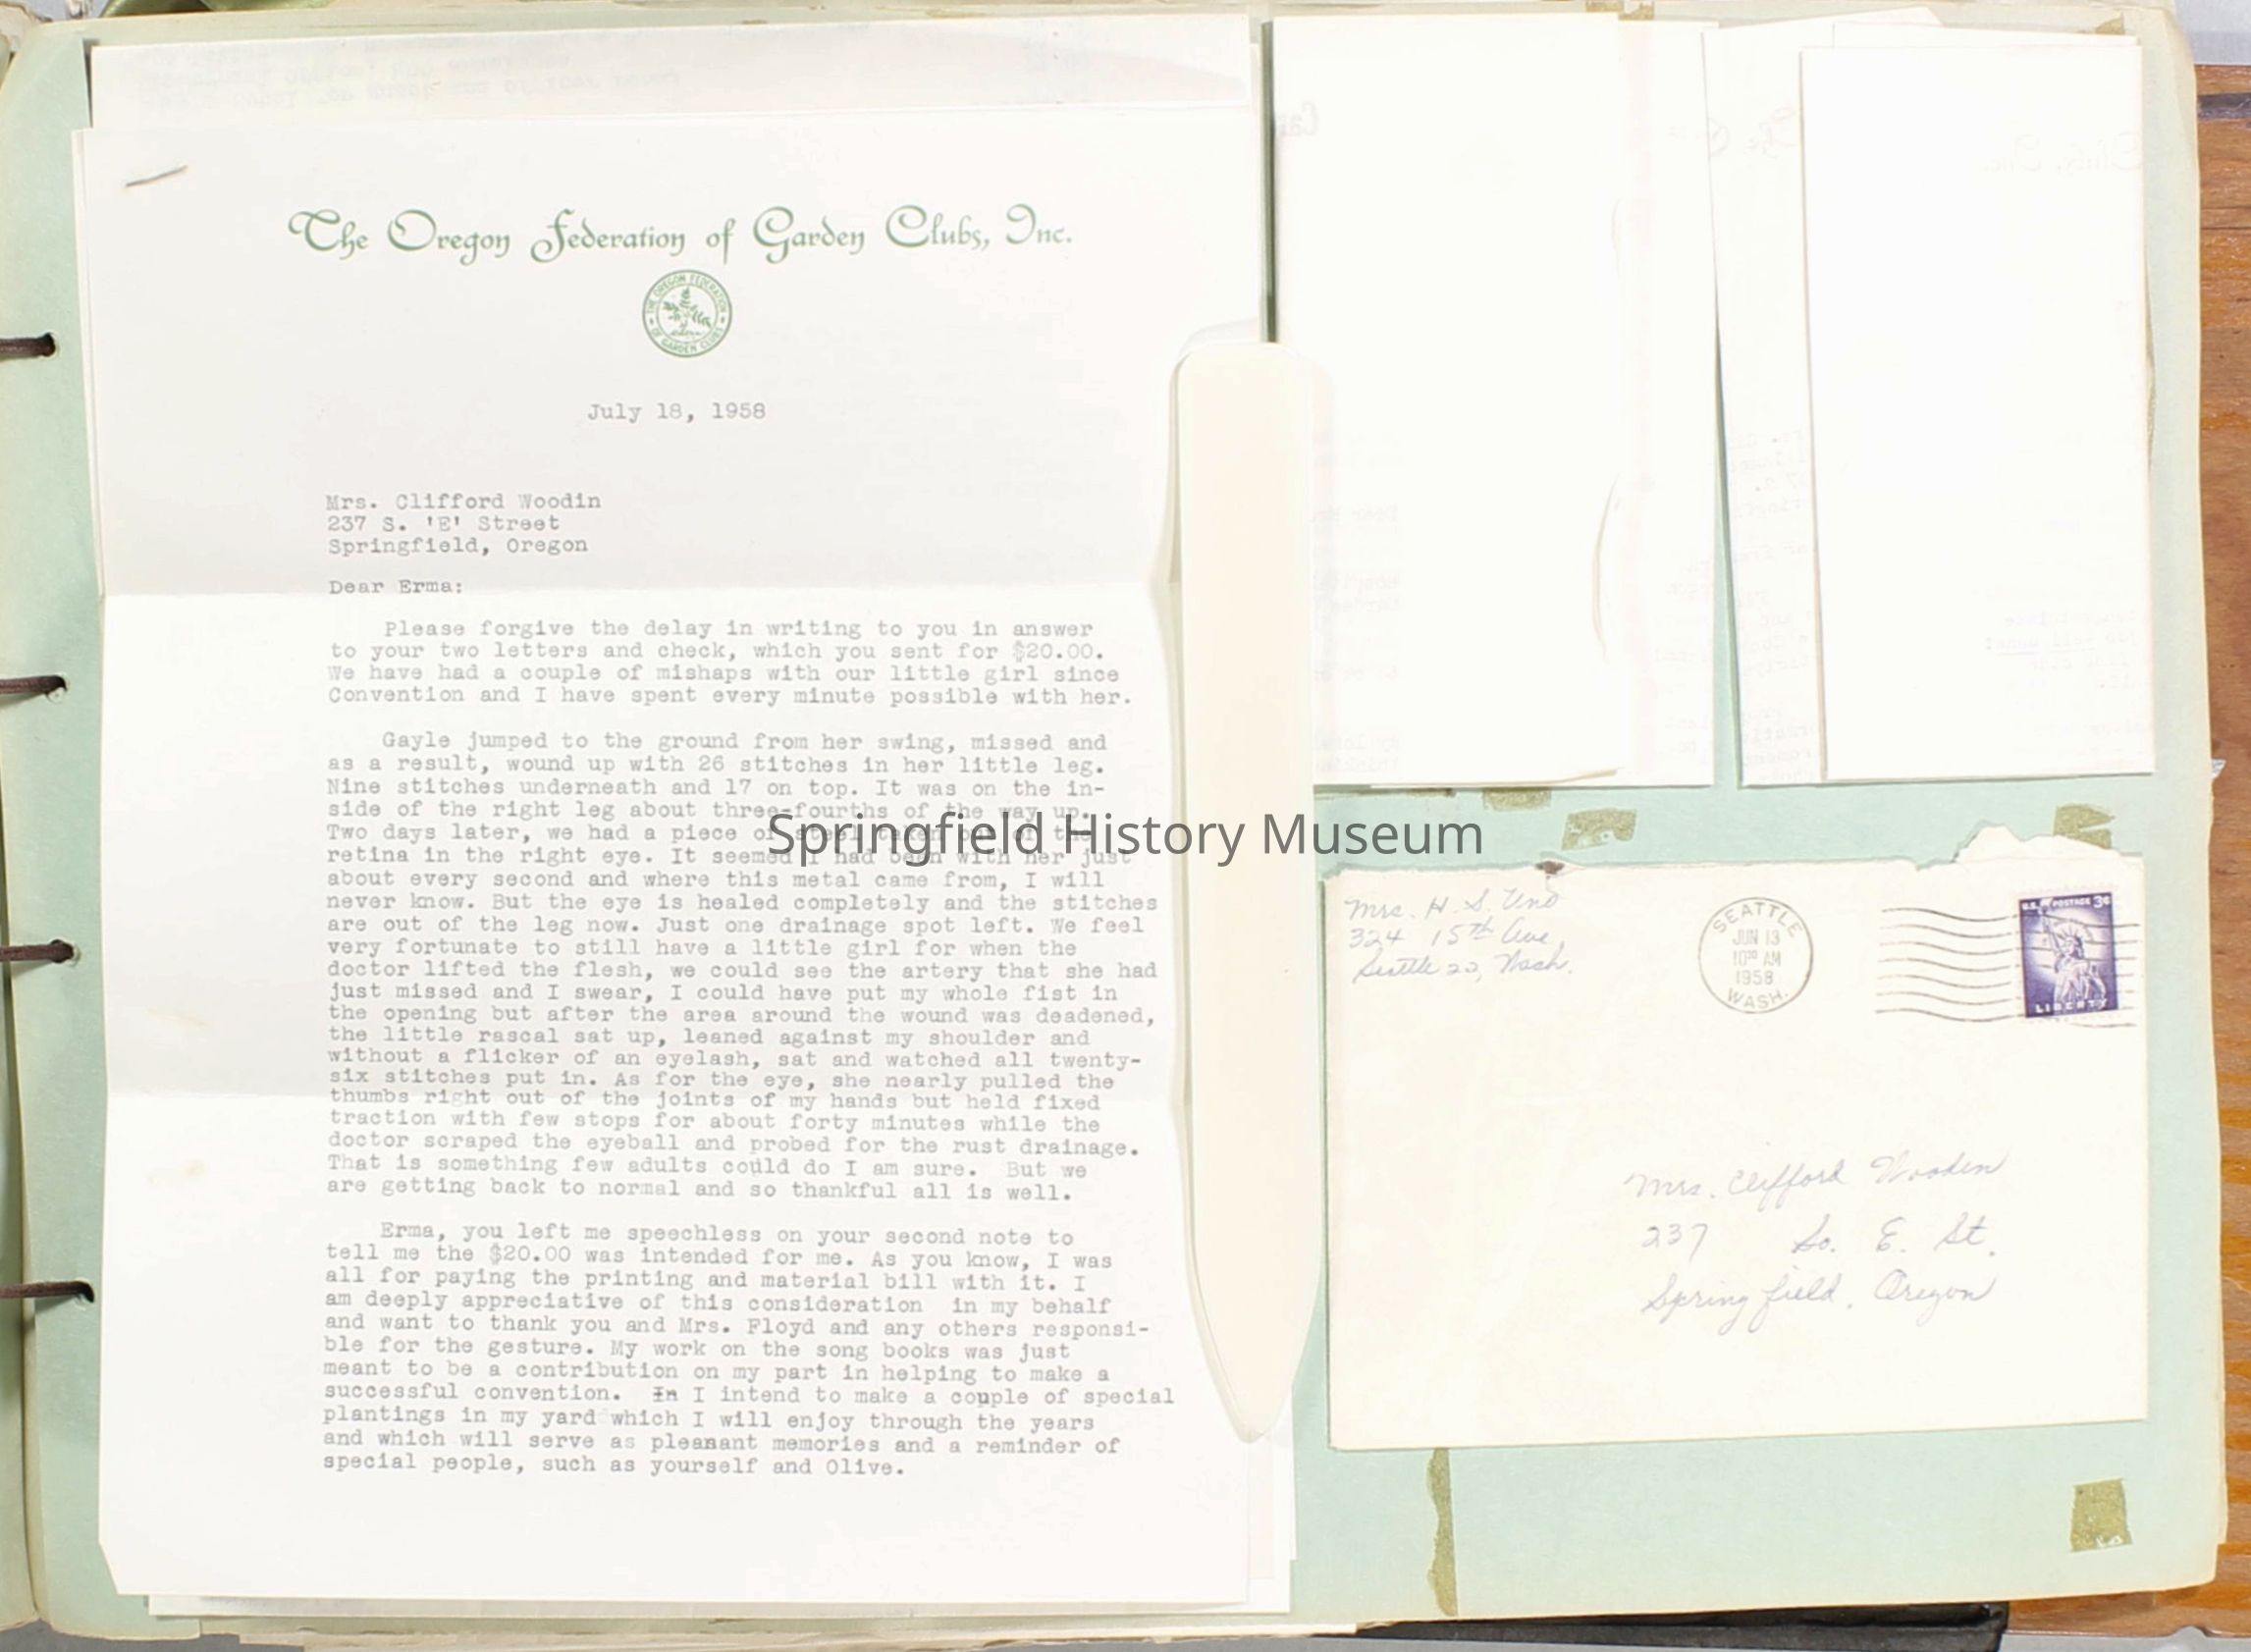 The Oregon Federation of Garden Clubs, Inc.
THE OREGON FEDERATION OF GARDEN CLUBS
July 18, 1958
Mrs. Clifford Woodin
237 S. 'E' Street
Springfield, Oregon
Dear Erma:
Please forgive the delay in writing to you in answer
to your two letters and check, which you sent for $20.00.
We have had a couple of mishaps with our little girl since
Convention and I have spent every minute possible with her.
Gayle jumped to the ground from her swing, missed and
as a result, wound up with 26 stitches in her little leg.
Nine stitches underneath and 17 on top. It was on the in-
side of the right leg about three-fourths of the way up.
Two days later, we had a piece of steel taken out of the
retina in the right eye. It seemed I had been with her just
about every second and where this metal came from, I will
never know. But the eye is healed completely and the stitches
are out of the leg now. Just one drainage spot left. We feel
very fortunate to still have a little girl for when the
doctor lifted the flesh, we could see the artery that she had
just missed and I swear, I could have put my whole fist in
the opening but after the area around the wound was deadened,
the little rascal sat up, leaned against my shoulder and
without a flicker of an eyelash, sat and watched all twenty-
six stitches put in. As for the eye, she nearly pulled the
thumbs right out of the joints of my hands but held fixed
traction with few stops for about forty minutes while the
doctor scraped the eyeball and probed for the rust drainage.
That is something few adults could do I am sure. But we
are getting back to normal and so thankful all is well.
Erma, you left me speechless on your second note to
tell me the $20.00 was intended for me. As you know, I was
all for paying the printing and material bill with it. I
am deeply appreciative of this consideration in my behalf
and want to thank you and Mrs. Floyd and any others responsi-
ble for the gesture. My work on the song books was just
meant to be a contribution on my part in helping to make a
successful convention. In I intend to make a couple of special
plantings in my yard which I will enjoy through the years
and which will serve as pleasant memories and a reminder of
special people, such as yourself and Olive.
Springfield History Museum
Mrs. H. S. Uno
324 15th Ave,
Seattle 22, Wash.
SEATTLE
JUN 13
10 30 AM
1958
WASH.
U.S. POSTAGE 3¢
LIBERTY
Mrs. Clifford Wooden
237 So. E. St.
Springfield, Oregon